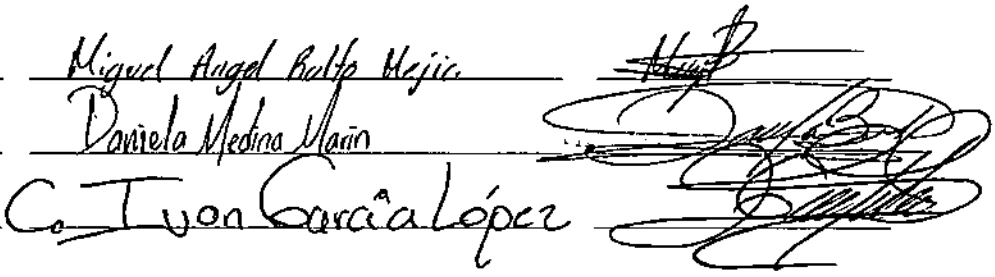 Miguel Angel Rulfo Mejia
Daniela Medina Marin
C. Ivon García López